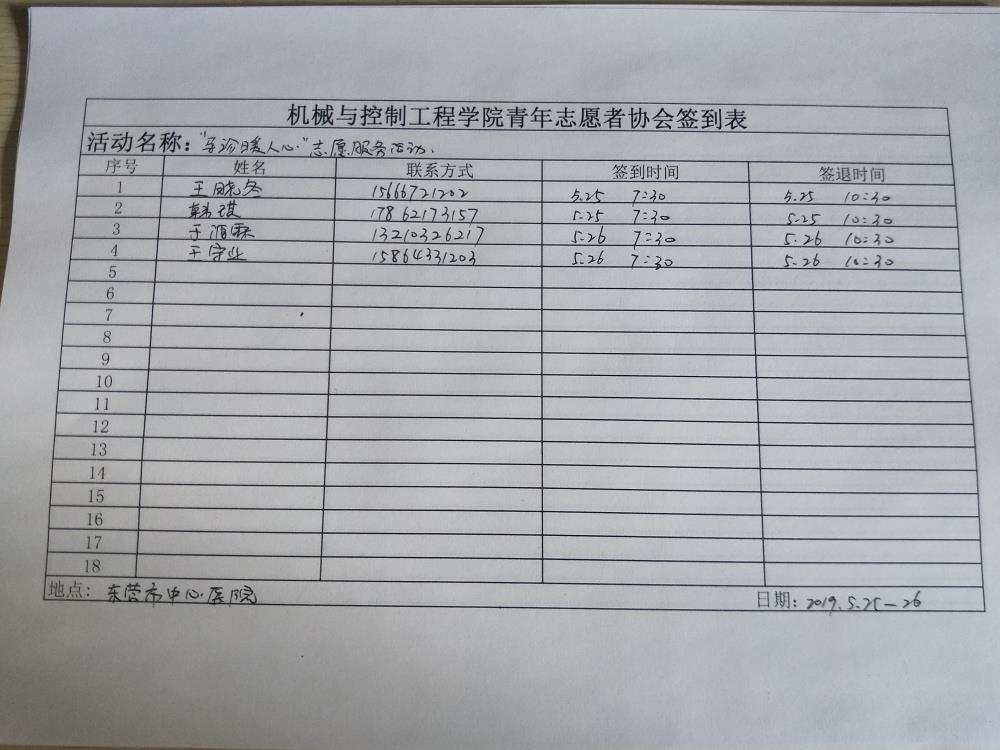 机械与控制工程学院青年志愿者协会签到表
活动名称："导诊暖人心"志愿服务活动.
序号 姓名 联系方式 签到时间 签退时间
1 王晓冬 15666721202 5.25 7:30 5.25 10:30
2 韩琪 17862173157 5.25 7:30 5.25 10:30
3 于 13210326217 5.26 7:30 5.26 10:30
4 王守业 15864331203 5.26 7:30 5.26 10:30
5
6
7
8
9
10
11
12
13
14
15
16
17
18
地点：东营市中心医院 日期：2019.5.25—26